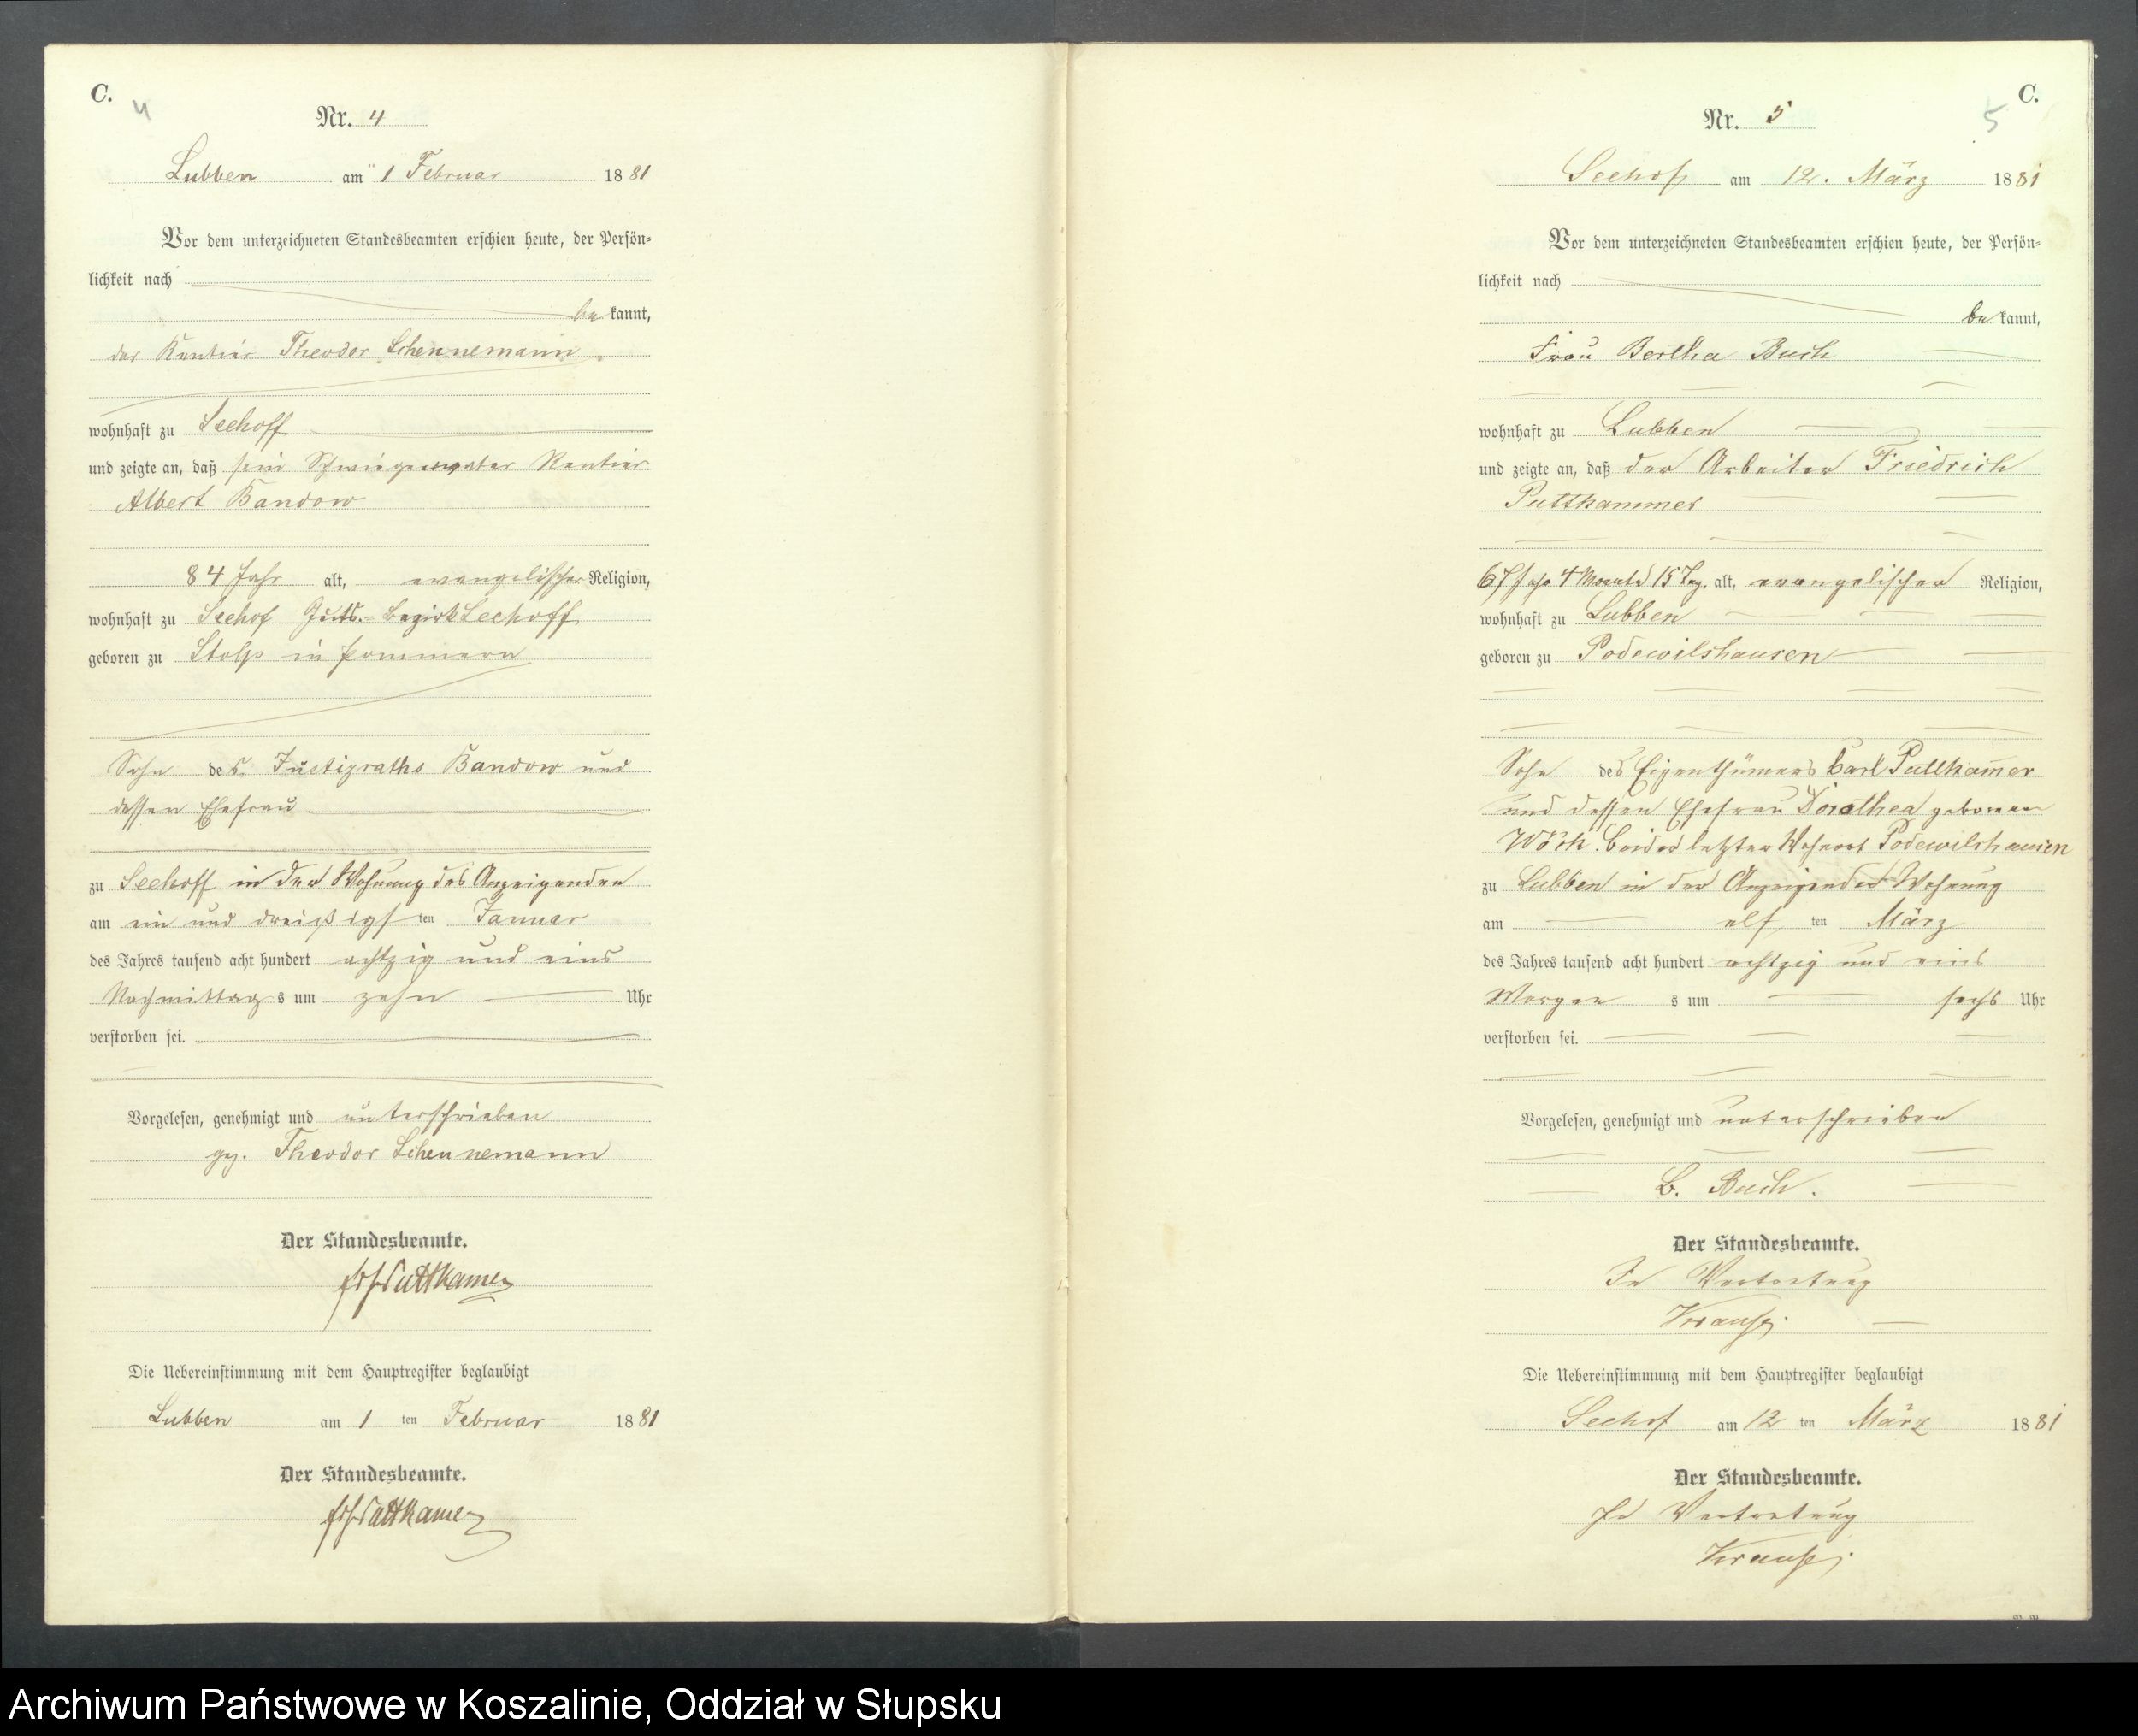 C.
4
Nr. 4
Lubben am 1 Februar 1881
Vor dem unterzeichneten Standesbeamten erschien heute, der Persön-
lichkeit nach
bekannt,
der Rentier Theodor Schennemann
wohnhaft zu Seehoff
und zeigte an, daß sein Schwiegervater Rentier
Albert Bandow
84 Jahr alt, evangelischer Religion,
wohnhaft zu Seehof Guts-Bezirk Seehoff
geboren zu Stolp in Pommern
Sohn des Justizraths Bandow und
dessen Ehefrau
zu Seehoff in der Wohnung des Anzeigenden
am ein und dreißigsten Januar
des Jahres tausend acht hundert achtzig und eins
Nachmittags um zehn Uhr
verstorben sei.
Vorgelesen, genehmigt und unterschrieben
gez. Theodor Schennemann
Der Standesbeamte.
Puttkamer
Die Uebereinstimmung mit dem Hauptregister beglaubigt
Lubben am 1 ten Februar 1881
Der Standesbeamte.
Puttkamer
C.
5
Nr. 5
Seehof am 12. März 1881
Vor dem unterzeichneten Standesbeamten erschien heute, der Persön-
lichkeit nach
bekannt,
Frau Bertha Buch
wohnhaft zu Lubben
und zeigte an, daß der Arbeiter Friedrich
Puttkammer
67 Jahr 4 Monate 15 Tag. alt, evangelischer Religion,
wohnhaft zu Lubben
geboren zu Podewilshausen
Sohn des Eigenthümers Carl Puttkamer
und dessen Ehefrau Dorothea geborenen
Wörk. beider letzter Wohnort Podewilshausen
zu Lubben in der Anzeigenden Wohnung
am elf ten März
des Jahres tausend acht hundert achtzig und eins
Morgens um sechs Uhr
verstorben sei.
Vorgelesen, genehmigt und unterschrieben
B. Buch.
Der Standesbeamte.
In Vertretung
Krause
Die Uebereinstimmung mit dem Hauptregister beglaubigt
Seehof am 12 ten März 1881
Der Standesbeamte.
In Vertretung
Krause
Archiwum Państwowe w Koszalinie, Oddział w Słupsku